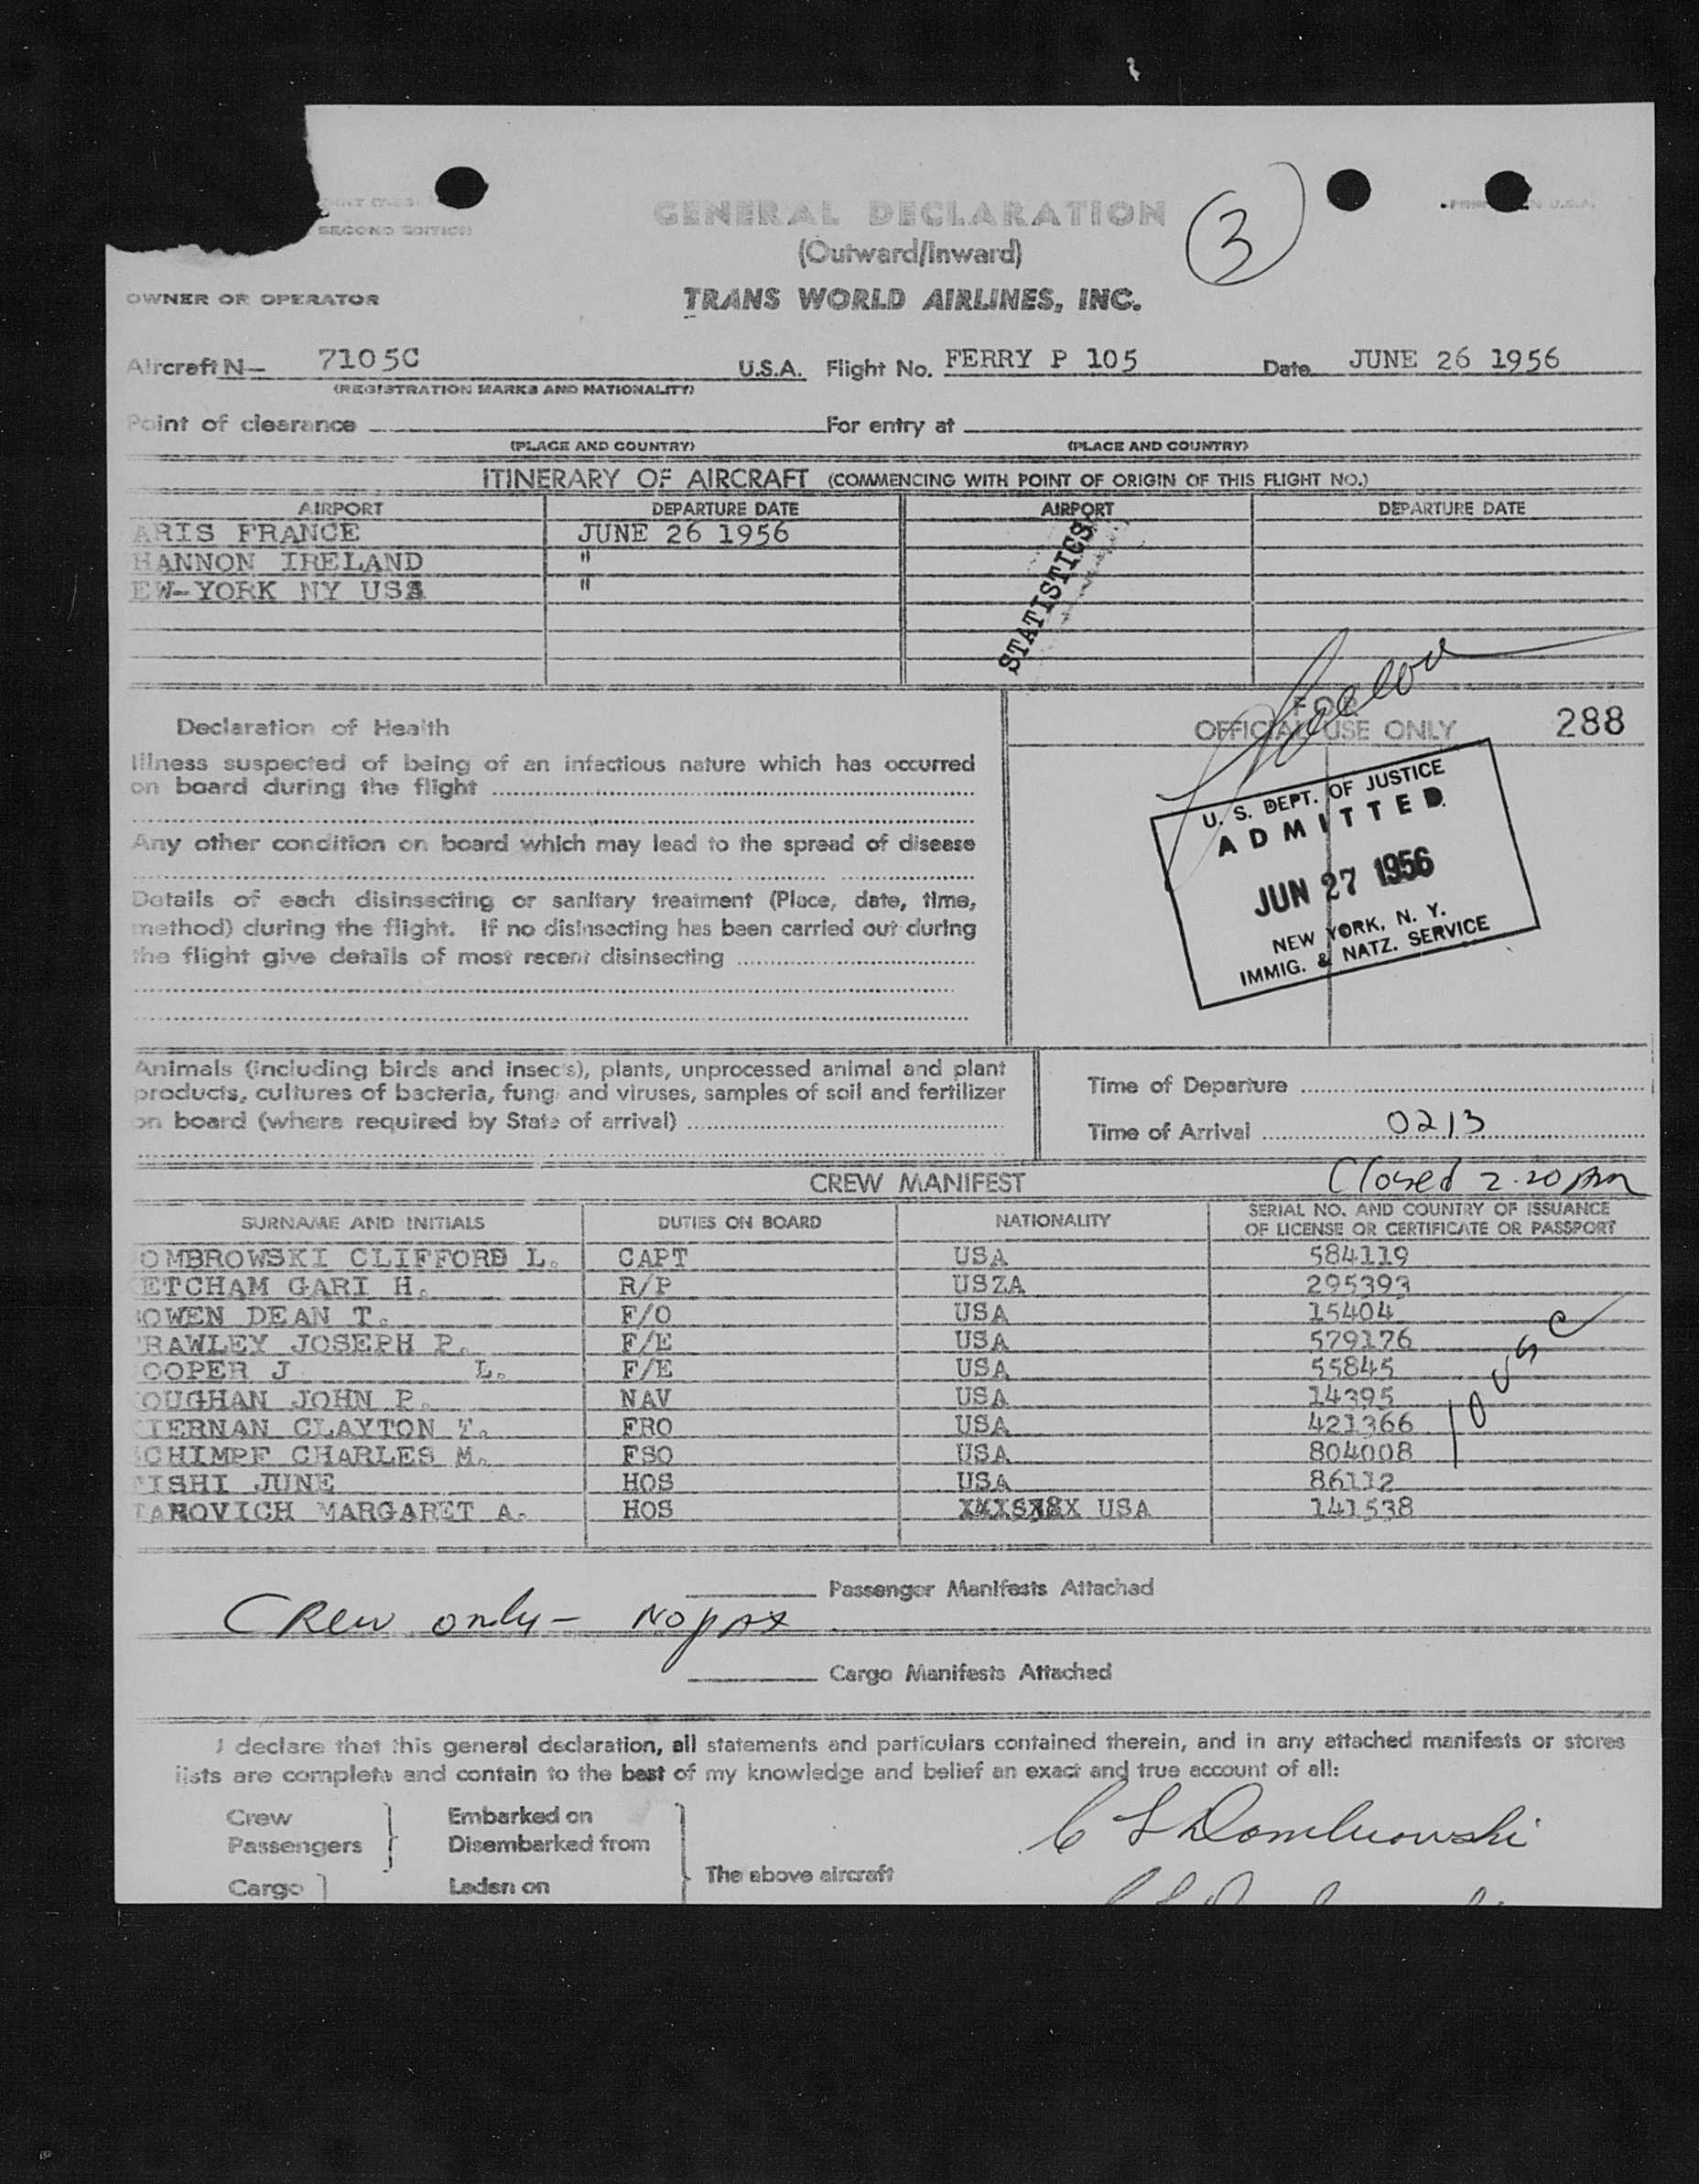 SECOND EDITION
GENERAL DECLARATION
(Outward/Inward)
3
OWNER OR OPERATOR
TRANS WORLD AIRLINES, INC.
Aircraft N— 7105C U.S.A. Flight No. FERRY P 105 Date JUNE 26 1956
(REGISTRATION MARKS AND NATIONALITY)
Point of clearance For entry at
(PLACE AND COUNTRY) (PLACE AND COUNTRY)
ITINERARY OF AIRCRAFT (COMMENCING WITH POINT OF ORIGIN OF THIS FLIGHT NO.)
AIRPORT DEPARTURE DATE AIRPORT DEPARTURE DATE
ARIS FRANCE JUNE 26 1956
HANNON IRELAND "
EW-YORK NY USA "
STATISTICS
Declaration of Health
FOR
OFFICIAL USE ONLY 288
Illness suspected of being of an infectious nature which has occurred
on board during the flight
Any other condition on board which may lead to the spread of disease
Details of each disinsecting or sanitary treatment (Place, date, time,
method) during the flight. If no disinsecting has been carried out during
the flight give details of most recent disinsecting
U. S. DEPT. OF JUSTICE
ADMITTED
JUN 27 1956
NEW YORK, N. Y.
IMMIG. & NATZ. SERVICE
Animals (including birds and insects), plants, unprocessed animal and plant
products, cultures of bacteria, fung and viruses, samples of soil and fertilizer
on board (where required by State of arrival)
Time of Departure
Time of Arrival 0213
CREW MANIFEST
Closed 2.20 AM
SURNAME AND INITIALS DUTIES ON BOARD NATIONALITY SERIAL NO. AND COUNTRY OF ISSUANCE
OF LICENSE OR CERTIFICATE OR PASSPORT
OMBROWSKI CLIFFORD L. CAPT USA 584119
ETCHAM GARI H. R/P USZA 295393
OWEN DEAN T. F/O USA 15404
RAWLEY JOSEPH P. F/E USA 579176
OOPER J L. F/E USA 55845
OUGHAN JOHN P. NAV USA 14395
IERNAN CLAYTON T. FRO USA 421366
CHIMPF CHARLES M. FSO USA 804008
ISHI JUNE HOS USA 86112
ANOVICH MARGARET A. HOS USA 141538
10 USC
Passenger Manifests Attached
Crew only — No pax
Cargo Manifests Attached
I declare that this general declaration, all statements and particulars contained therein, and in any attached manifests or stores
lists are complete and contain to the best of my knowledge and belief an exact and true account of all:
Crew Embarked on
Passengers Disembarked from
The above aircraft
Cargo Laden on
C L Dombrowski